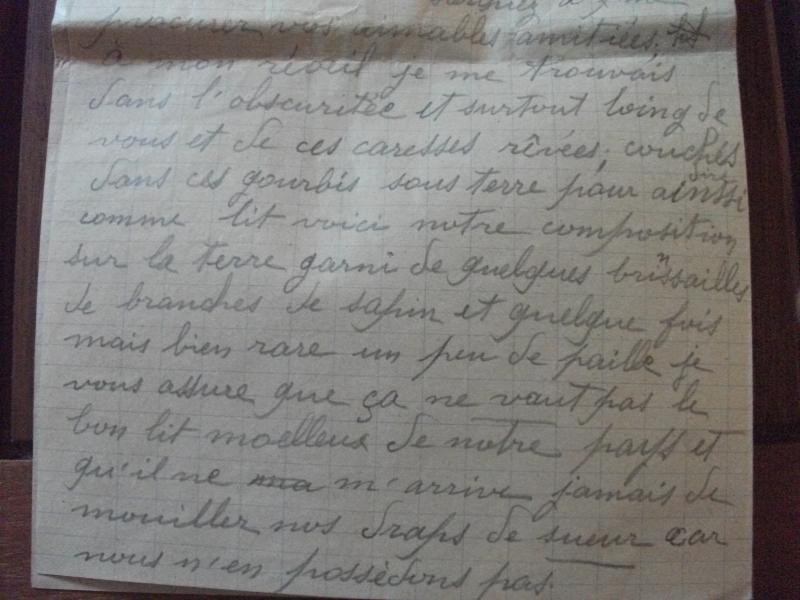 procurer vos aimables amitiées,
à mon réveil je me trouvais
dans l'obscuritée et surtout loing de
vous et de ces caresses rêvées, couchés
dans ces gourbis sous terre pour ainssi
comme lit voici notre composition
sur la terre garni de quelques brissailles
de branches de sapin et quelque fois
mais bien rare un peu de paille je
vous assure que ça ne vaut pas le
bon lit moelleux de notre pays et
qu'il ne m'arrive jamais de
mouiller nos draps de sueur car
nous n'en possèdons pas.